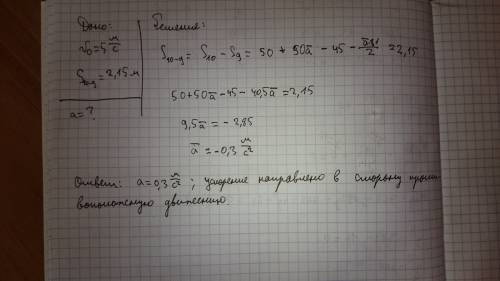 Дано:
v₀=5 м/с
S₁₀₋₉=2,15 м
a=?
Решение:
S₁₀₋₉ = S₁₀ − S₉ = 50 + 50a̅ − 45 − a̅81/2 = 2,15
50+50a̅−45−40,5a̅=2,15
9,5a̅ = −2,85
a̅ = −0,3 м/с²
Ответ: a=0,3 м/с²; ускорение направлено в сторону проти-
воположную движению.